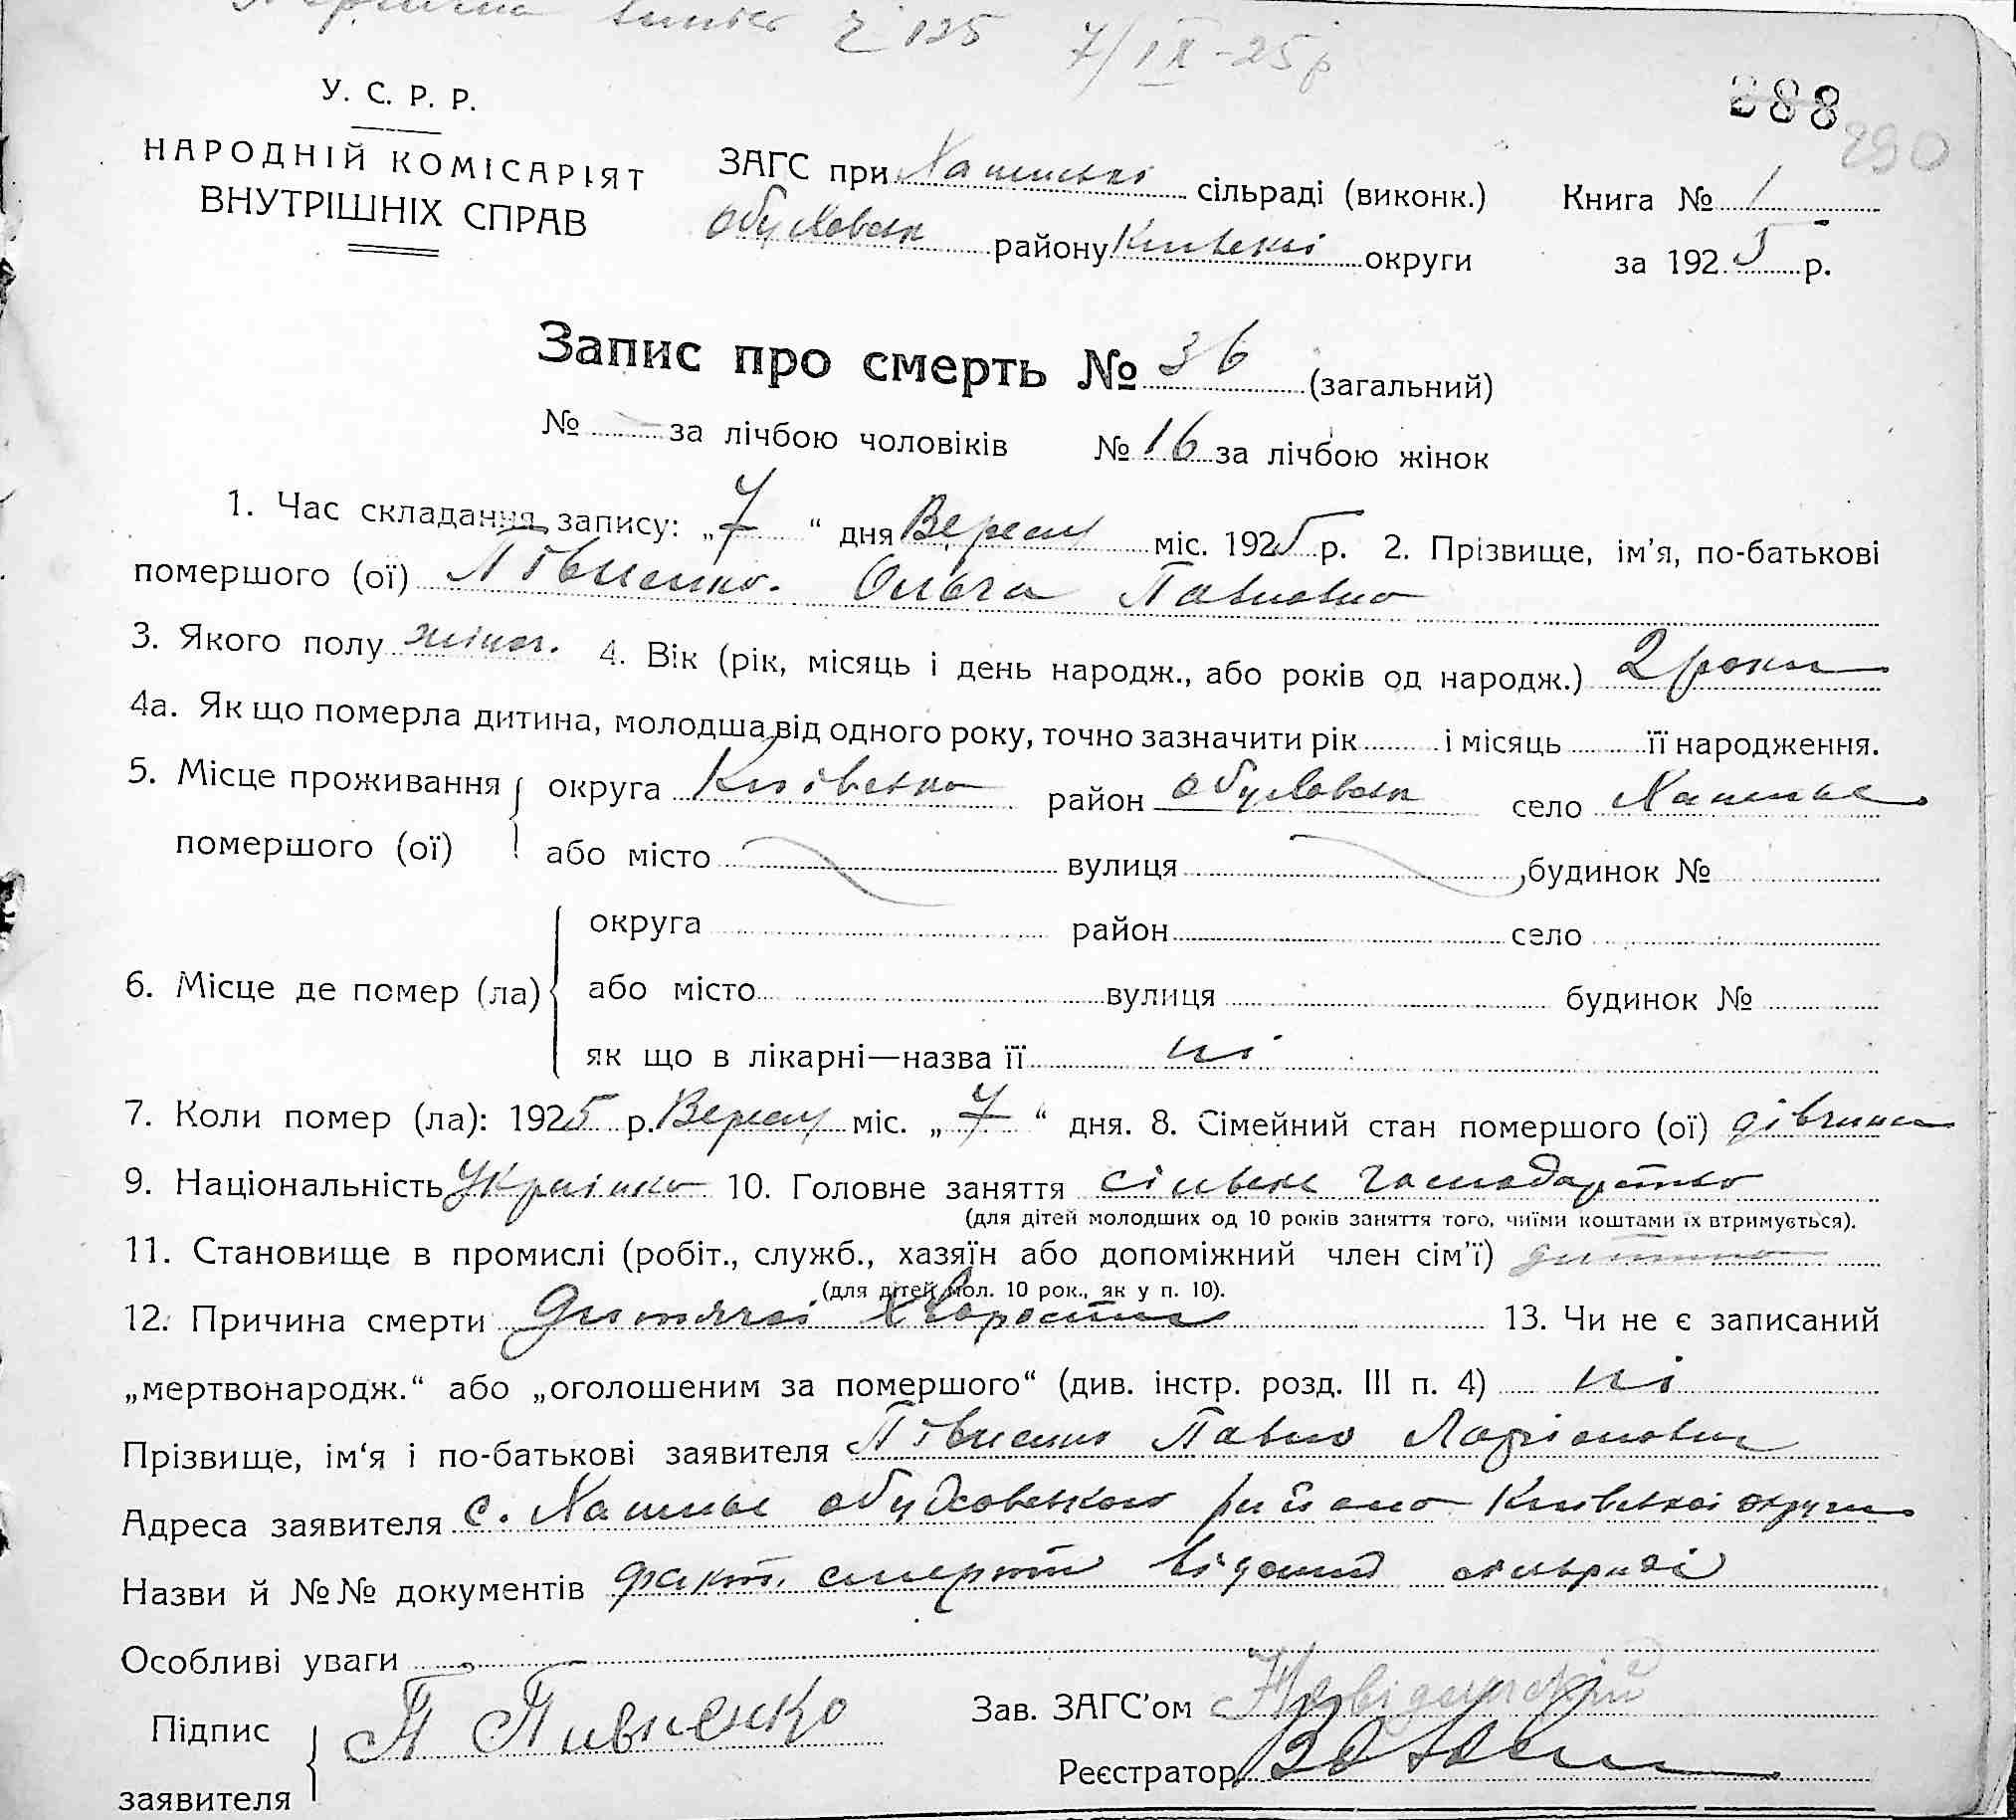 125 7/IX-25р
388
290
У. С. Р. Р.
НАРОДНІЙ КОМІСАРІЯТ
ВНУТРІШНІХ СПРАВ
ЗАГС при сільраді (виконк.) Книга № 1
району Київської округи за 1925 р.
Запис про смерть № 36 (загальний)
№ — за лічбою чоловіків № 16 за лічбою жінок
1. Час складання запису: „7“ дня Вересня міс. 1925 р. 2. Прізвище, ім'я, по-батькові
помершого (ої) Півненко. Ольга Павловна
3. Якого полу жіноч. 4. Вік (рік, місяць і день народж., або років од народж.) 2 роки
4а. Як що померла дитина, молодша від одного року, точно зазначити рік і місяць її народження.
5. Місце проживання округа Київська район село
помершого (ої) або місто вулиця будинок №
округа район село
6. Місце де помер (ла) або місто вулиця будинок №
як що в лікарні—назва її ні
7. Коли помер (ла): 1925 р. Вересня міс. „7“ дня. 8. Сімейний стан помершого (ої) дівчина
9. Національність Українка 10. Головне заняття сільське господарство
(для дітей молодших од 10 років заняття того, чиїми коштами їх втримується).
11. Становище в промислі (робіт., служб., хазяїн або допоміжний член сім'ї) дитина
(для дітей мол. 10 рок., як у п. 10).
12. Причина смерти дитячої хворости 13. Чи не є записаний
„мертвонародж.“ або „оголошеним за помершого“ (див. інстр. розд. III п. 4) ні
Прізвище, ім'я і по-батькові заявителя Півненко Павло Ларіонович
Адреса заявителя с. району Київської округи
Назви й №№ документів факт. смерти сільраді
Особливі уваги
Підпис П Пивненко Зав. ЗАГС'ом
заявителя Реєстратор